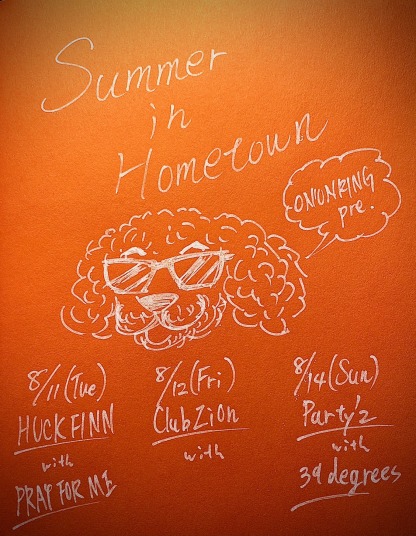 Summer
in
Hometown
ONIONRING
pre.
8/11(Tue)
HUCK FINN
with
PRAY FOR ME
8/12(Fri)
Club Zion
with
8/14(Sun)
Party'z
with
39degrees